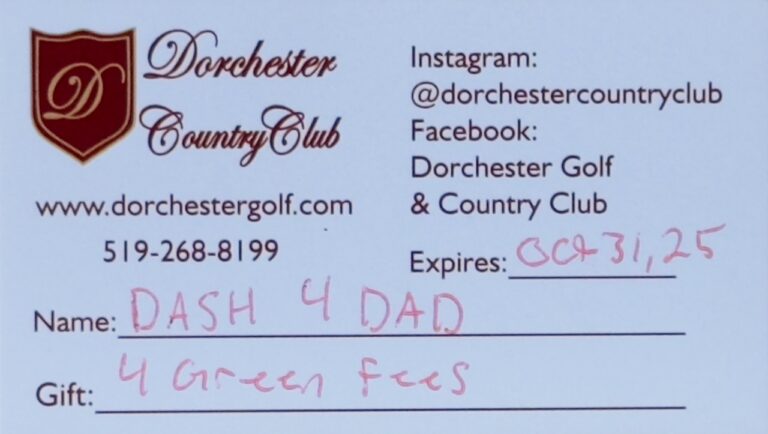 D
Dorchester
Country Club
www.dorchestergolf.com
519-268-8199
Instagram:
@dorchestercountryclub
Facebook:
Dorchester Golf
& Country Club
Expires: Oct 31, 25
Name: DASH 4 DAD
Gift: 4 Green Fees